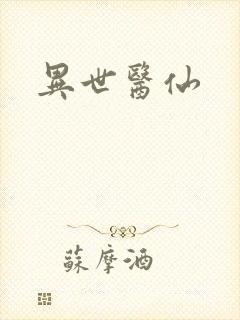 異世醫仙
蘇摩酒